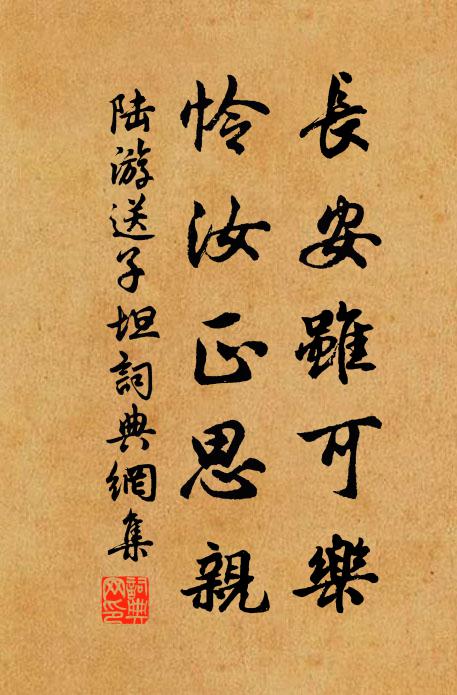 長安雖可樂
怜汝正思親
陸游送子坦詞典網集
詞典網印